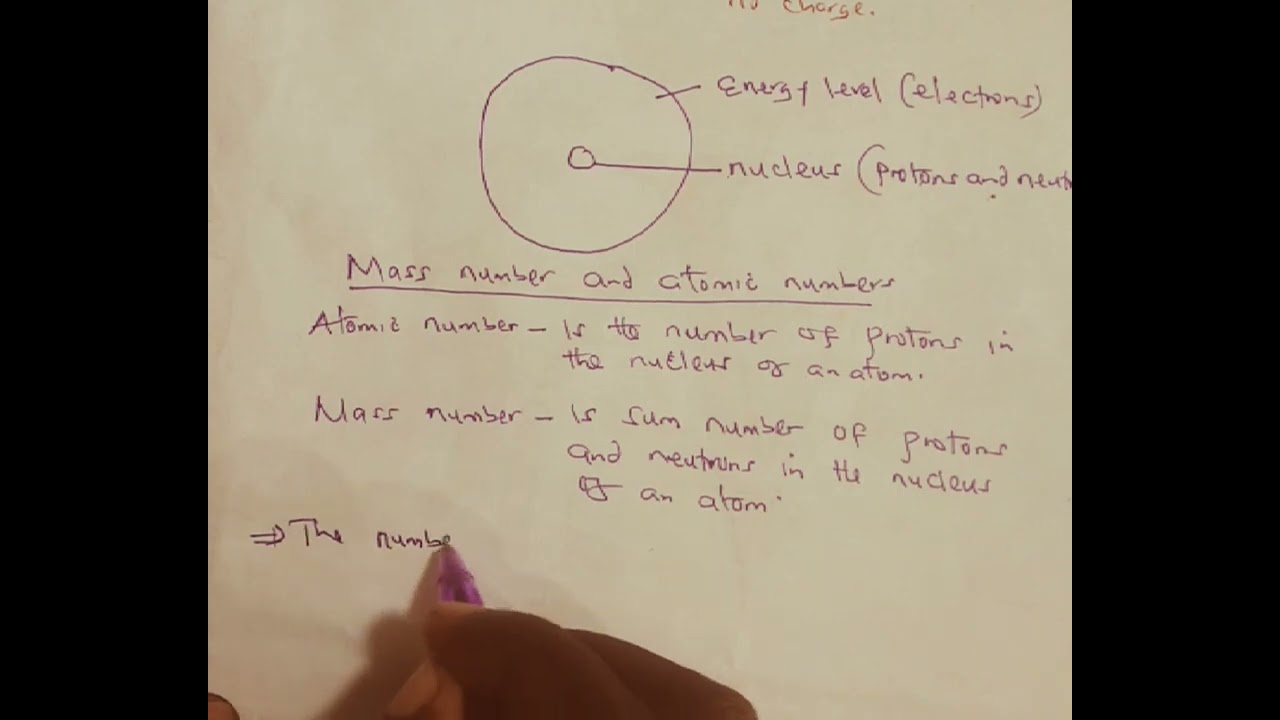 no charge.
Energy level (electrons)
nucleus (protons and neut
Mass number and atomic numbers
Atomic number - is the number of protons in
the nucleus of an atom.
Mass number - is sum number of protons
and neutrons in the nucleus
of an atom.
⇒ The numbe